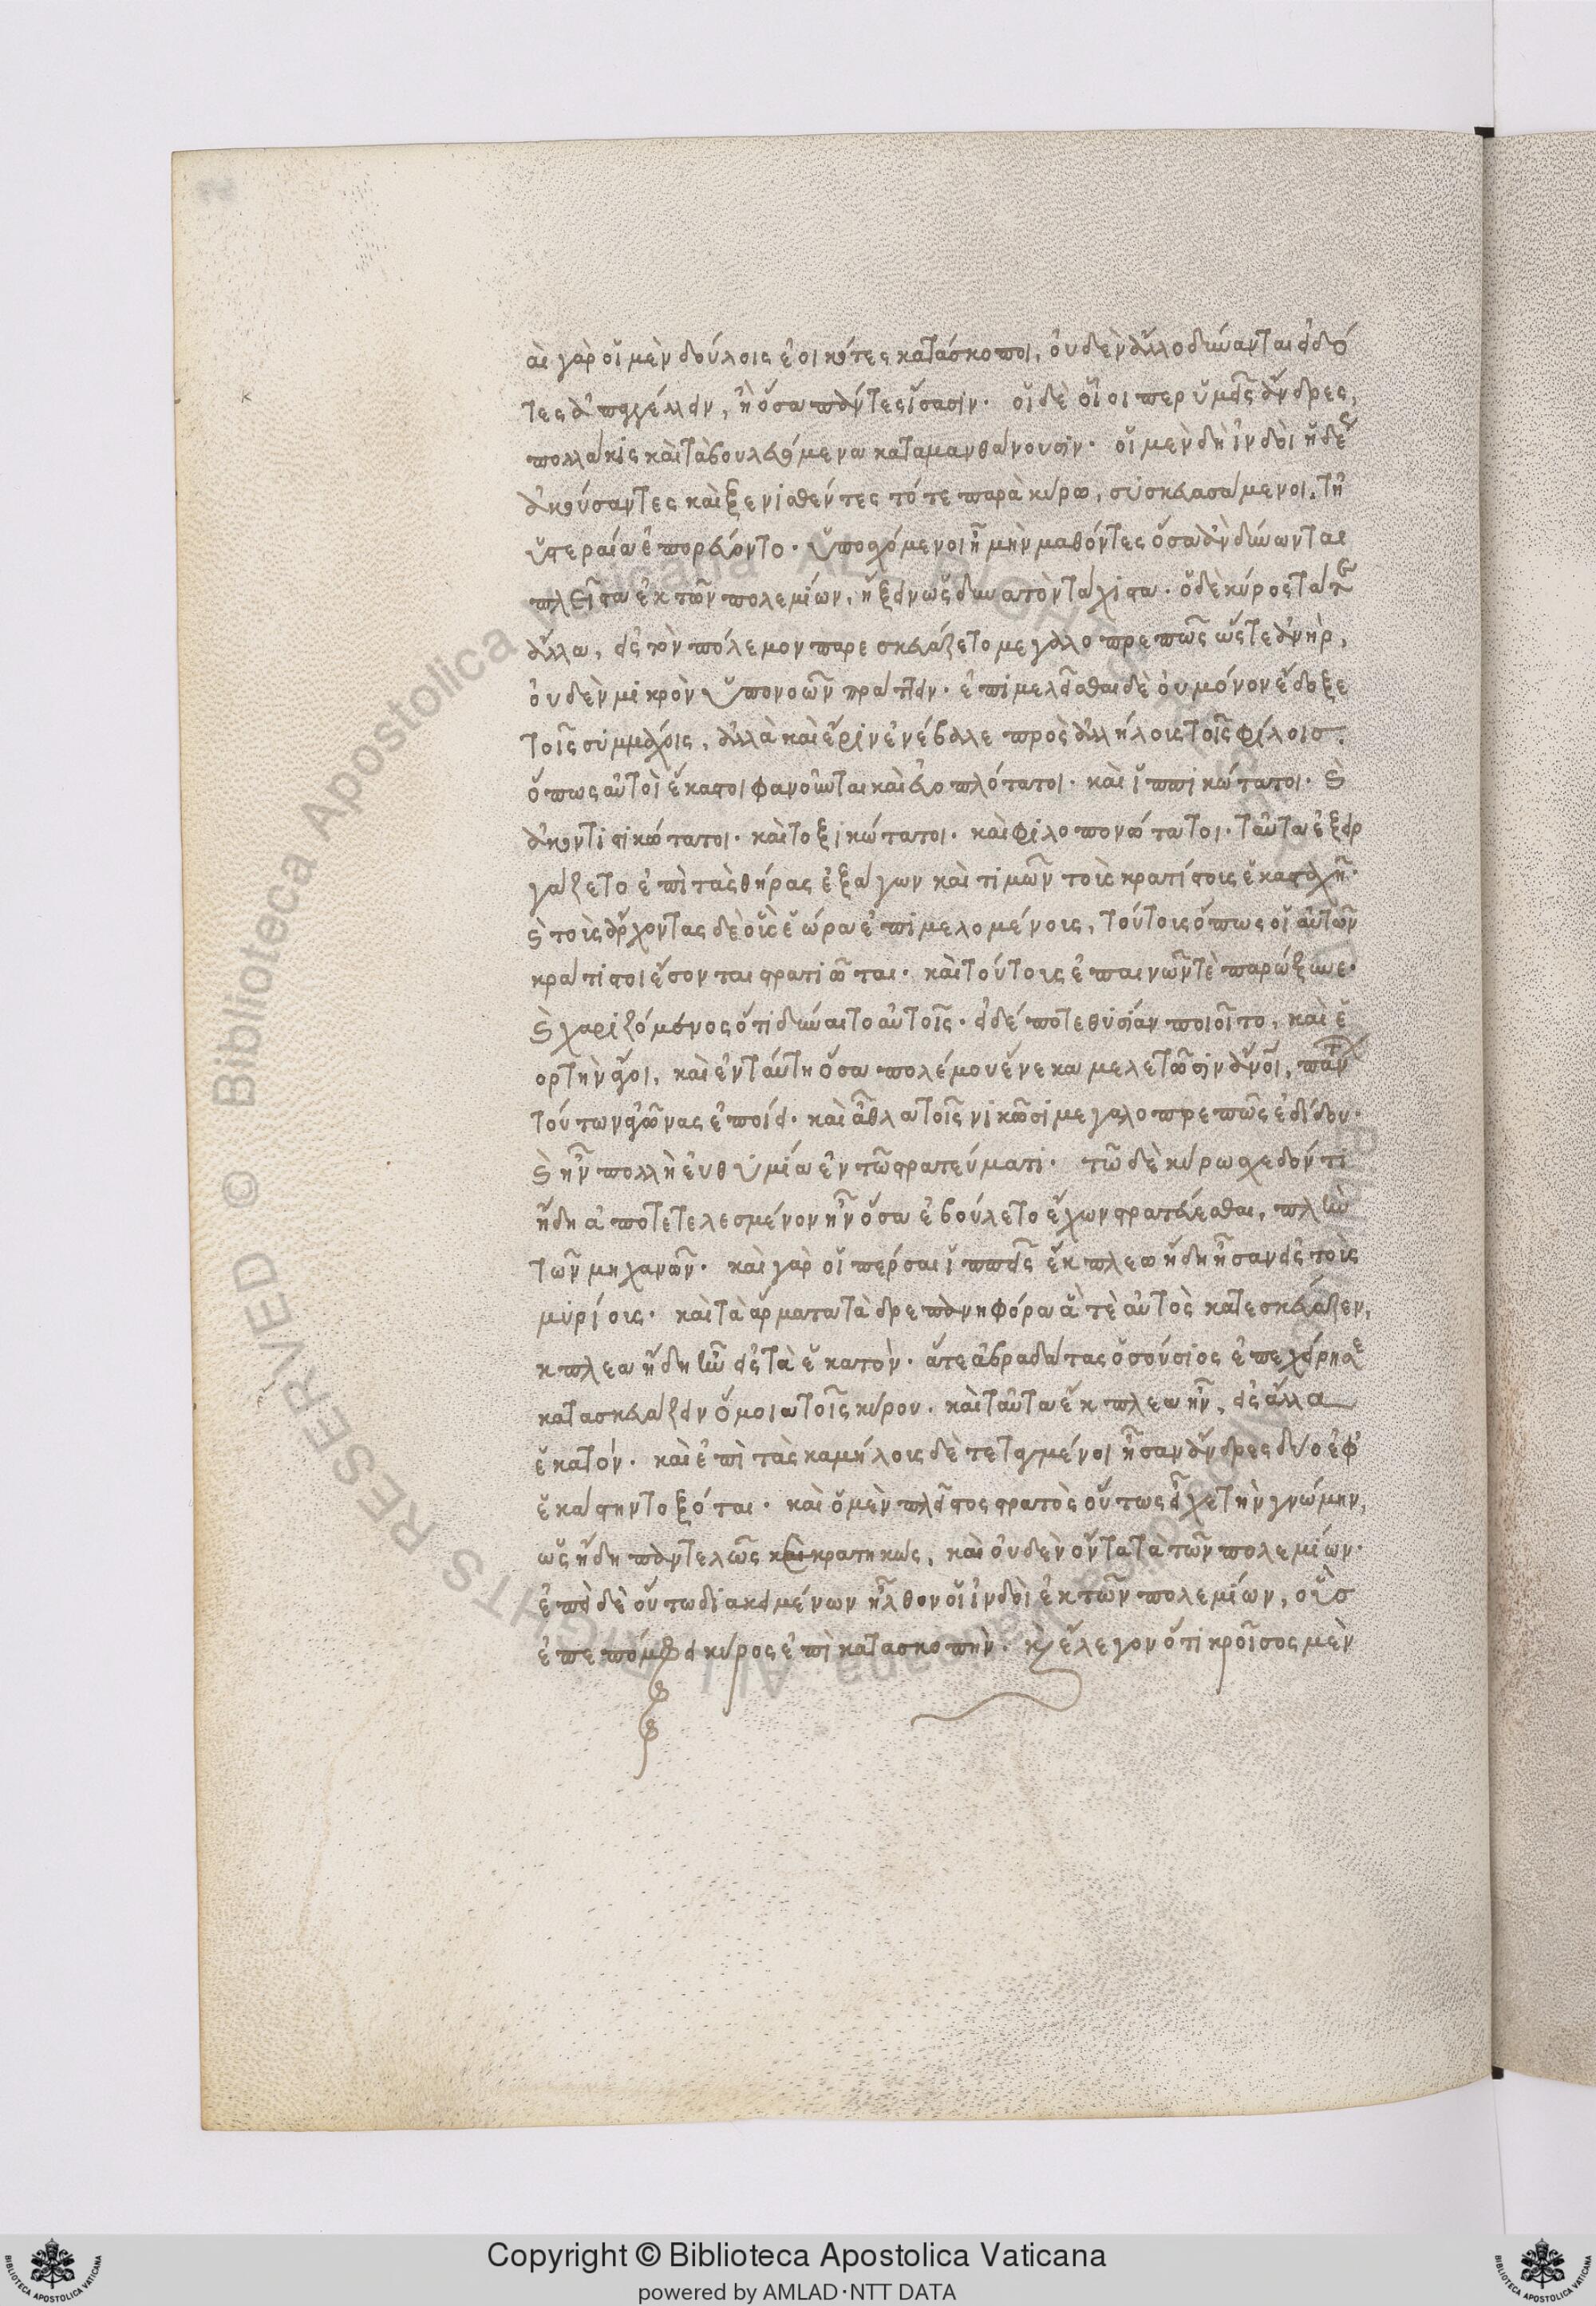 αι γὰρ οἱ μὲν δούλοις ἐοικότες κατάσκοποι, οὐδὲν ἄλλο δύνανται εἰδό
τες ἀπαγγέλλειν, ἢ ὅσα πάντες ἴσασιν. οἱ δὲ οἷοι περ ὑμεῖς ἄνδρες,
πολλάκις καὶ τὰ βουλευόμενα καταμανθάνουσιν. οἱ μὲν δὴ ἰνδοὶ ἡδέως
ἀκούσαντες καὶ ξενισθέντες τότε παρὰ κύρω, συσκευασάμενοι, τῇ
ὑστεραία ἐπορεύοντο. ὑποσχόμενοι ἦ μὴν μαθόντες ὅσα ἂν δύνωνται
πλεῖστα ἐκ τῶν πολεμίων, ἥξειν ὡς δυνατὸν τάχιστα. ὁ δὲ κύρος τά τε
ἄλλα, εἰς τὸν πόλεμον παρεσκευάζετο μεγαλοπρεπῶς ὥστε ἀνὴρ,
οὐδὲν μικρὸν ὑπονοῶν πράττειν. ἐπιμελεῖσθαι δὲ οὐ μόνον ἔδοξε
τοῖς συμμάχοις, ἀλλὰ καὶ ἔριν ἐνέβαλε πρὸς ἀλλήλοις τοῖς φίλοις.
ὅπως αὐτοὶ ἕκαστοι φανοῦνται καὶ εὐοπλότατοι. καὶ ἱππικώτατοι. καὶ
ἀκοντιστικώτατοι. καὶ τοξικώτατοι. καὶ φιλοπονώτατοι. ταῦτα ἐξειρ
γάζετο ἐπὶ τὰς θήρας ἐξάγων καὶ τιμῶν τοὺς κρατίστοις ἑκασταχῇ.
καὶ τοὺς ἄρχοντας δὲ οὓς ἑώρα ἐπιμελομένοις, τούτοις ὅπως οἱ αὐτῶν
κράτιστοι ἔσονται στρατιῶται. καὶ τούτοις ἐπαινῶν τὲ παρώξυνε.
καὶ χαριζόμενος ὅτι δύναιτο αὐτοῖς. εἰ δέ ποτε θυσίαν ποιοῖτο, καὶ ἑ
ορτὴν ἄγοι, καὶ ἐν ταύτη ὅσα πολέμου ἕνεκα μελετῶσιν ἄνοι, πάντων
τούτων ἀγῶνας ἐποίει. καὶ ἆθλα τοῖς νικῶσι μεγαλοπρεπῶς ἐδίδου.
καὶ ἦν πολλὴ εὐθυμία ἐν τῶ στρατεύματι. τῶ δὲ κύρω σχεδόν τι
ἤδη ἀποτετελεσμένον ἦν ὅσα ἐβούλετο ἔχων στρατεύεσθαι, πλὴν
τῶν μηχανῶν. καὶ γὰρ οἱ πέρσαι ἱππεῖς ἔκπλεω ἤδη ἦσαν εἰς τοὺς
μυρίοις. καὶ τὰ ἅρματα τὰ δρεπανηφόρα ἅ τὲ αὐτὸς κατεσκεύαζεν,
κπλεα ἤδη ἦν εἰς τὰ ἑκατὸν. ἅ τε ἀβραδάτας ὁ σούσιος ἐπεχείρησε
κατασκευάζειν ὅμοια τοῖς κύρου. καὶ ταῦτα ἔκπλεα ἦν, εἰς ἄλλα
ἑκατόν. καὶ ἐπὶ τὰς καμήλοις δὲ τεταγμένοι ἦσαν ἄνδρες δύο ἐφ'
ἑκάστην τοξόται. καὶ ὁ μὲν πλεῖστος στρατὸς οὕτως εἶχε τὴν γνώμην,
ὡς ἤδη παντελῶς καὶ κρατηκὼς, καὶ οὐδὲν ὄντα τὰ τῶν πολεμίων.
ἐπεὶ δὲ οὕτω διακειμένων ἦλθον οἱ ἰνδοὶ ἐκ τῶν πολεμίων, οὓς
ἐπεπόμφει κύρος ἐπὶ κατασκοπὴν. καὶ ἔλεγον ὅτι κροῖσος μὲν